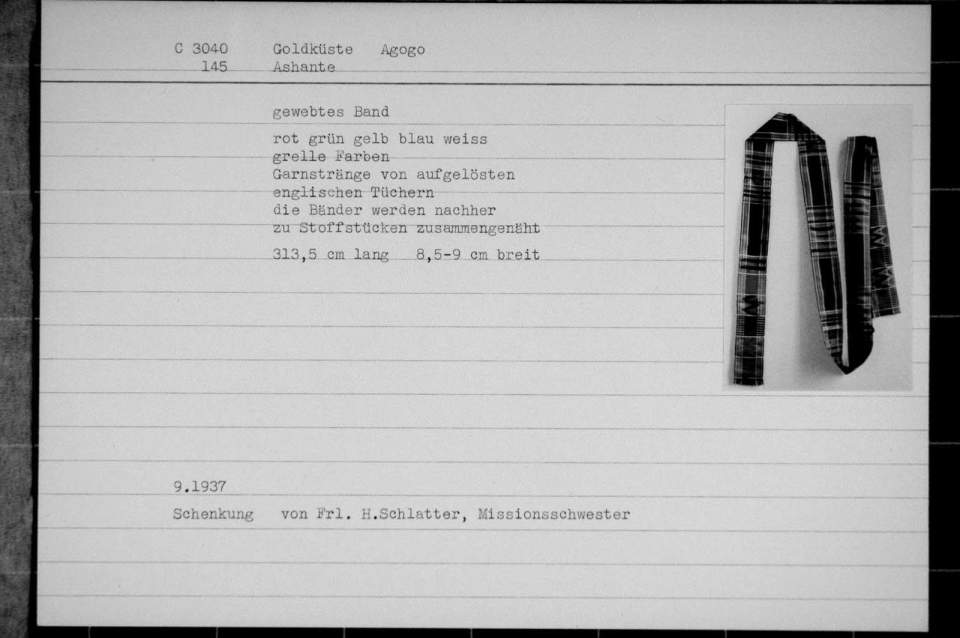 C 3040 Goldküste Agogo
145 Ashante
gewebtes Band
rot grün gelb blau weiss
grelle Farben
Garnstränge von aufgelösten
englischen Tüchern
die Bänder werden nachher
zu Stoffstücken zusammengenäht
313,5 cm lang 8,5-9 cm breit
9.1937
Schenkung von Frl. H.Schlatter, Missionsschwester